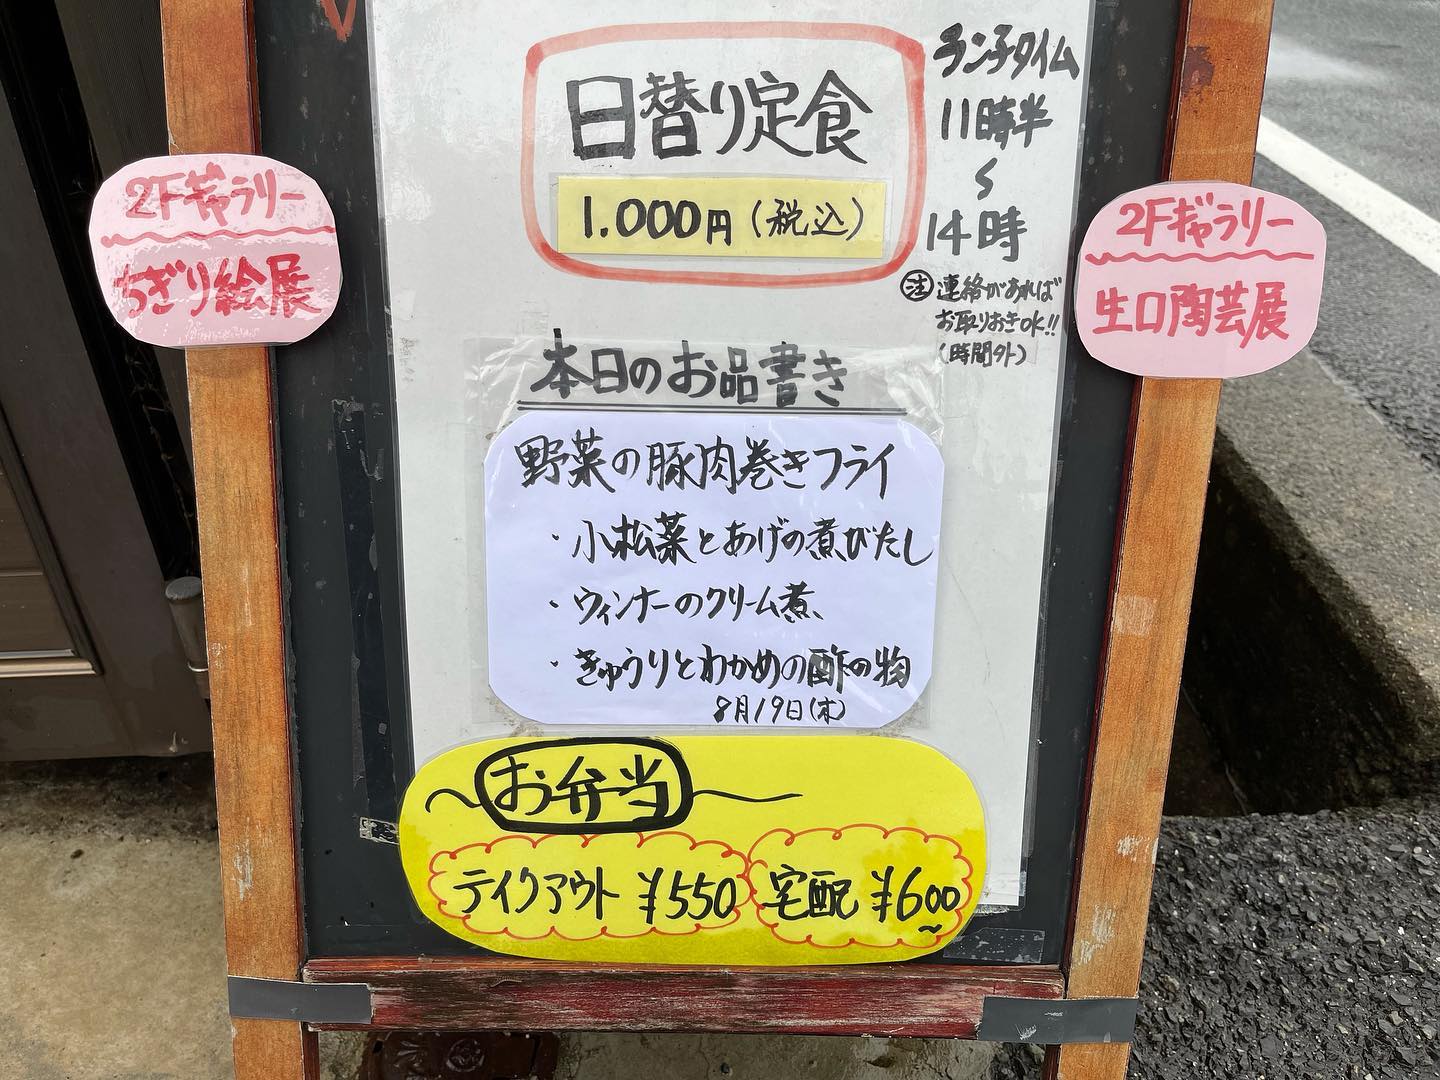 日替り定食
1.000円(税込)
ランチタイム
11時半
〜
14時
注 連絡があれば
お取りおきOK!!
(時間外)
2Fギャラリー
ちぎり絵展
2Fギャラリー
生口陶芸展
本日のお品書き
野菜の豚肉巻きフライ
・小松菜とあげの煮びたし
・ウィンナーのクリーム煮
・きゅうりとわかめの酢の物
8月19日(木)
お弁当
テイクアウト ¥550
宅配 ¥600〜